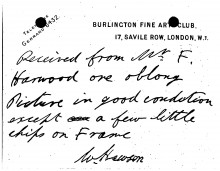 TELEPHONE
GERRARD 9452.
BURLINGTON FINE ARTS CLUB,
17, SAVILE ROW, LONDON, W.1.
Received from Mr. F.
Harwood one oblong
Picture in good condition
except a few little
chips on Frame